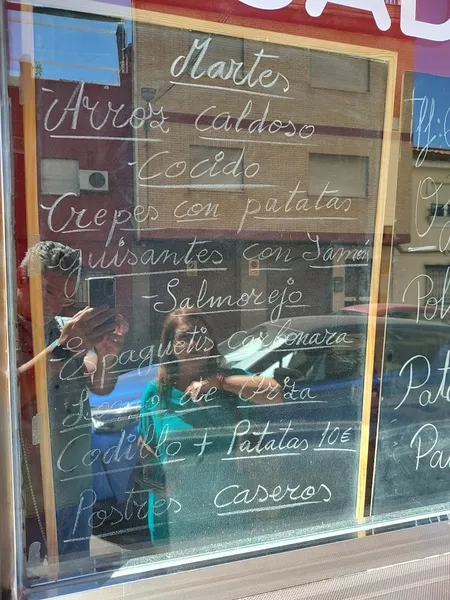 Martes
Arroz caldoso
-Cocido
Crepes con patatas
guisantes con Jamón
-Salmorejo
Espaguetis carbonara
Lomo de Orza
Codillo + Patatas 10€
Postres caseros
Pat
Pa